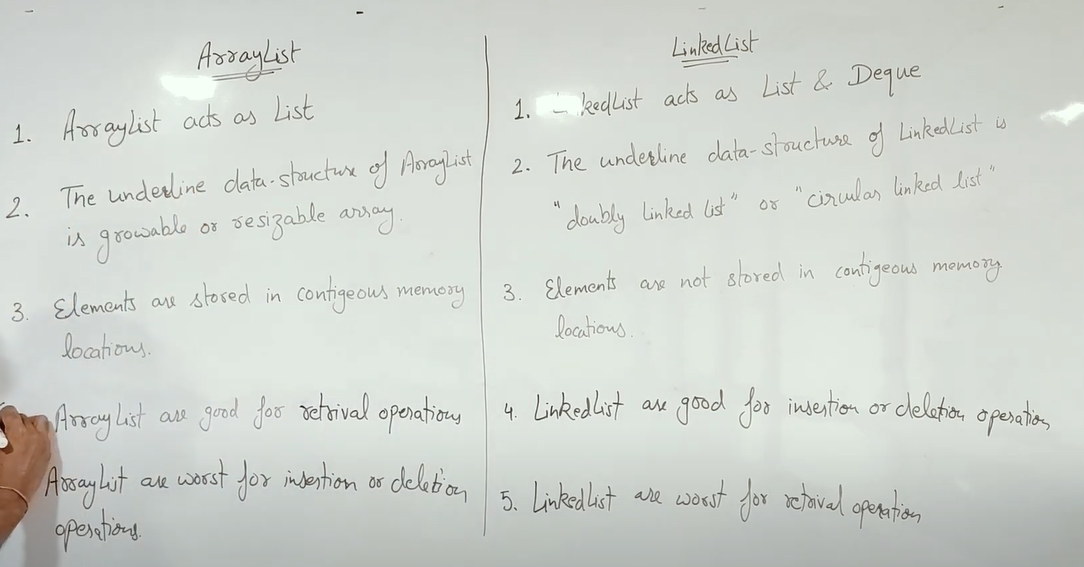 ArrayList
1. ArrayList acts as List
2. The underline data-structure of ArrayList
is growable or resizable array.
3. Elements are stored in contigeous memory
locations.
ArrayList are good for retrival operations
ArrayList are worst for insertion or deletion
operations.
LinkedList
1. kedList acts as List & Deque
2. The underline data-structure of LinkedList is
"doubly linked list" or "circular linked list"
3. Elements are not stored in contigeous memory
locations.
4. LinkedList are good for insertion or deletion operation
5. LinkedList are worst for retrival operation